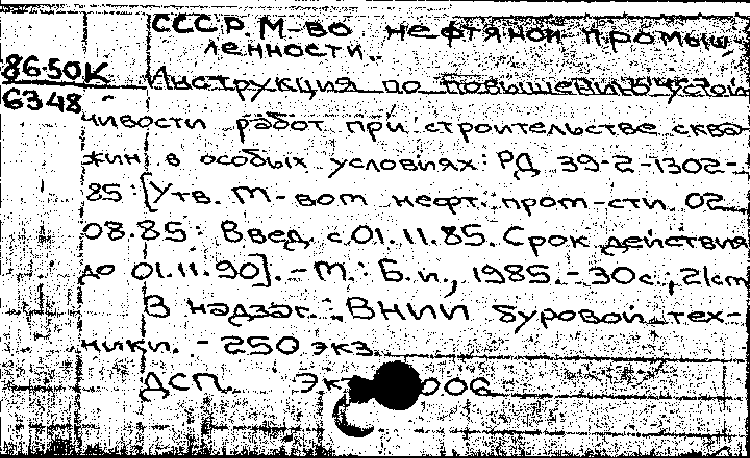 СССР. М-во нефтяной промыш-
ленности.
86-50К
6348
Инструкция по повышению устой
чивости работ при строительстве сква-
жин в особых условиях: РД 39-2-1302-
85: [Утв. М-вом нефт. пром-сти 02.
08.85: Введ. с 01.11.85. Срок действия
до 01.11.90]. - М.: Б.и., 1985. - 30с.; 21см
В надзаг.: ВНИИ буровой тех-
ники. - 250 экз.
ДСП.